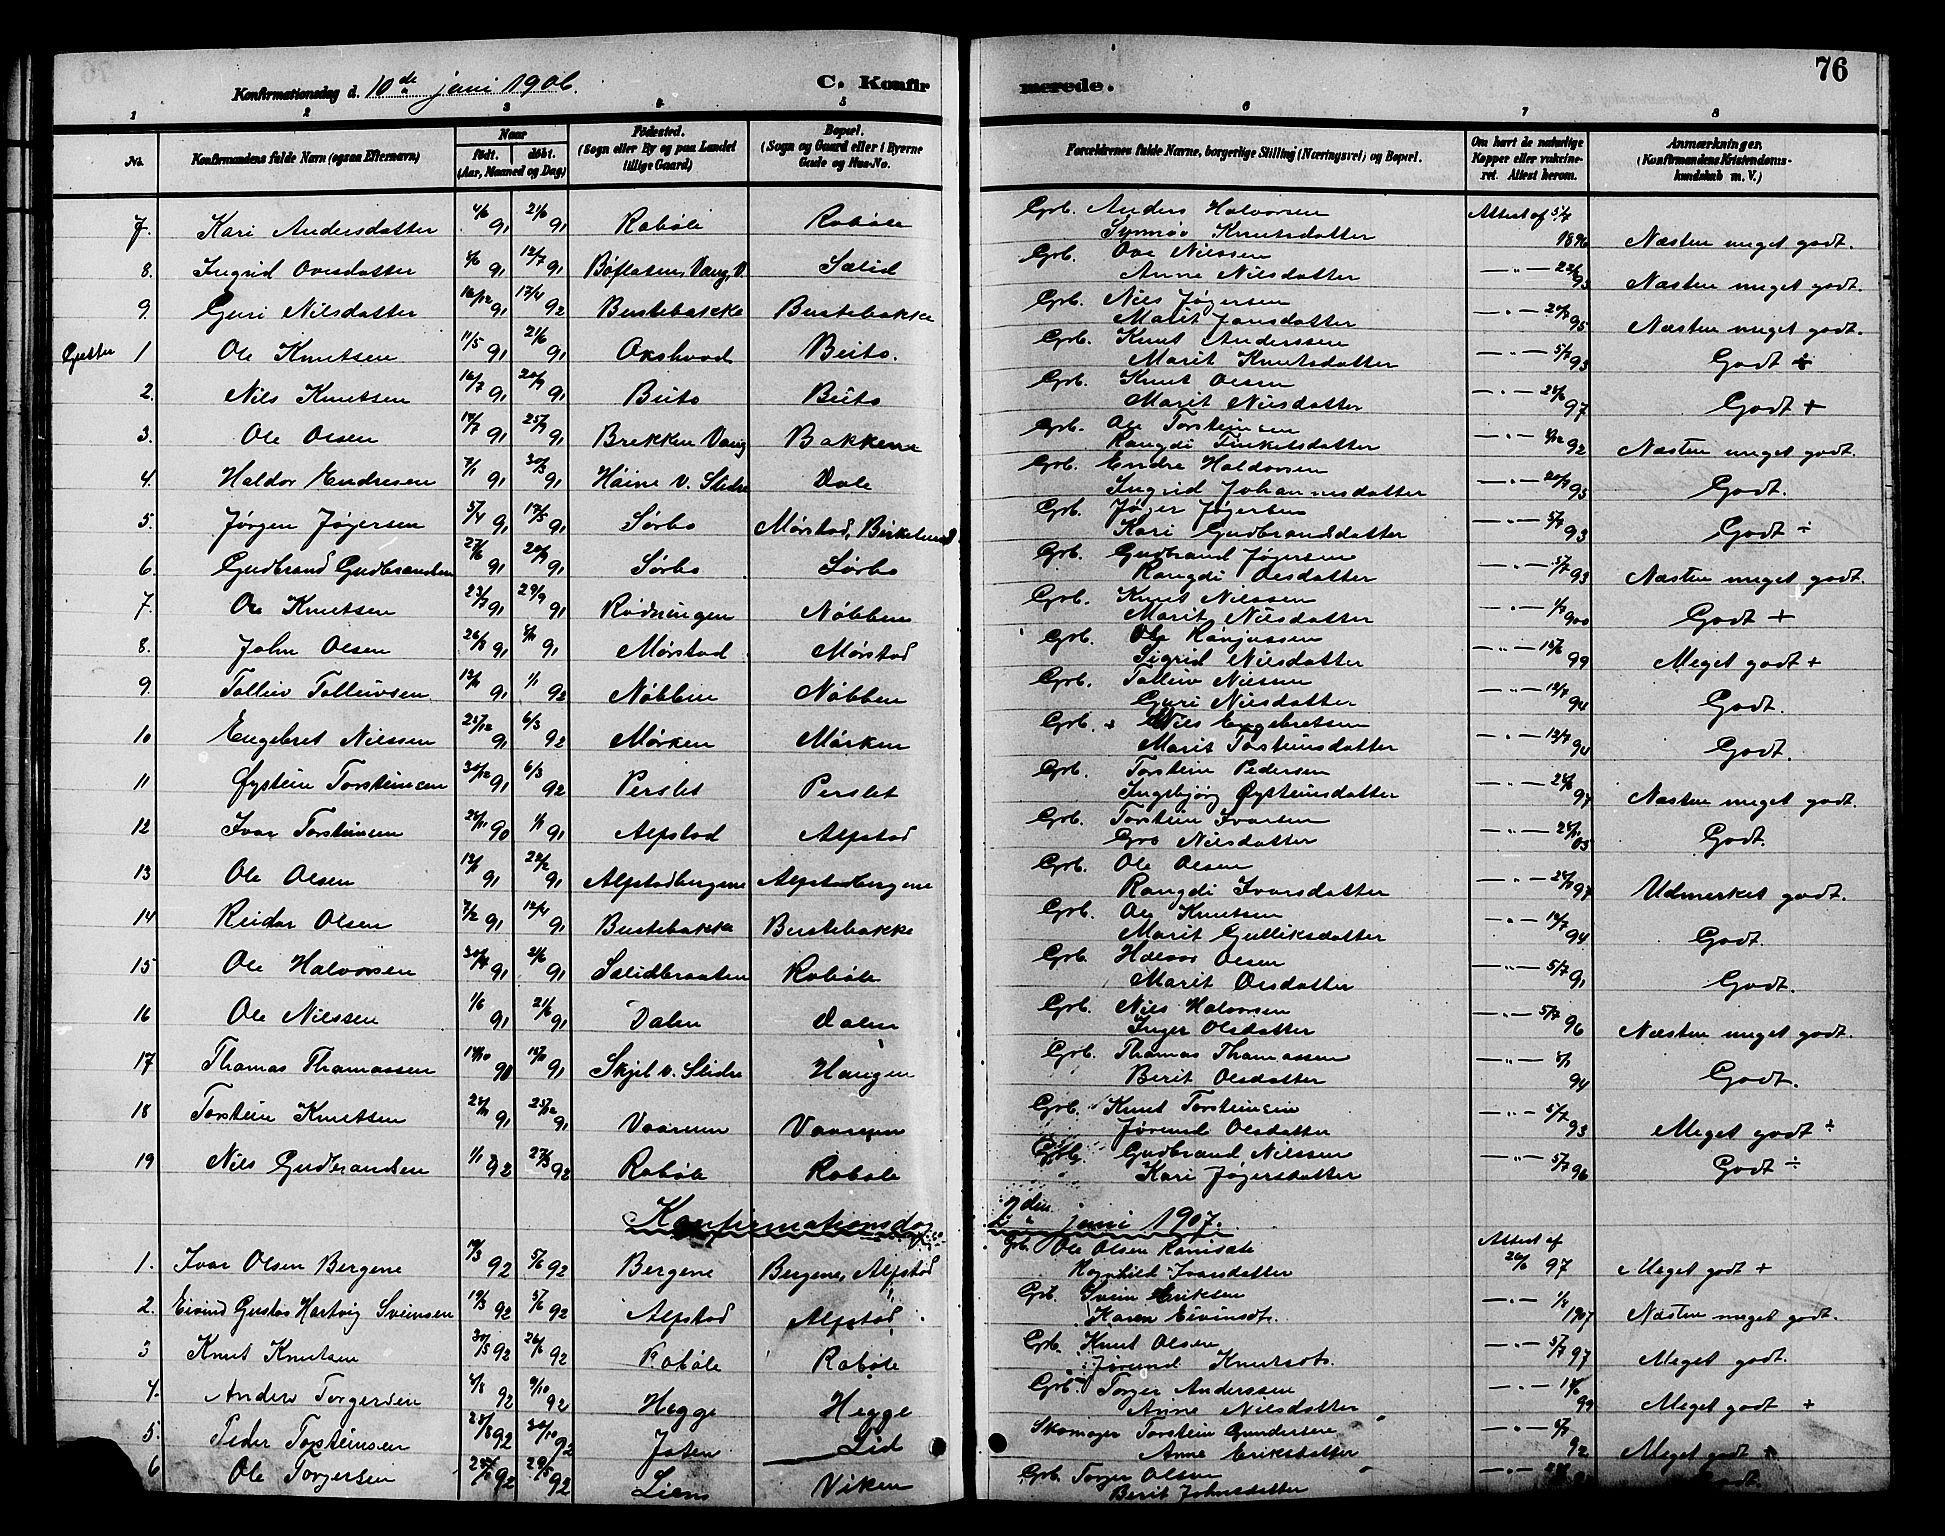 76
Konfirmationsdag d. 10de juni 1906. C. Konfir merede.
1 2 3 4 5 6 7 8
No. Konfirmandens fulde Navn (ogsaa Efternavn) Naar født. døbt. (Aar, Maaned og Dag) Fødested. (Sogn eller By og paa Landet tillige Gaard) Bopæl. (Sogn og Gaard eller i Byerne Gade og Hus-No. Forældrenes fulde Navne, borgerlige Stilling (Næringsvei) og Bopæl. Om havt de naturlige Kopper eller vakcineret. Attest herom. Anmærkninger. (Konfirmandens Kristendomskundskab m. V.)
7. Kari Andersdatter 4/6 91 21/6 91 Robøle Robøle Grb. Anders Halvorsen Attest af
Synnøv Knutsdatter 1896 Næsten meget godt.
8. Ingrid Ovesdatter 91 12/7 91 Vang, V. Sælid Grb. Ove Nilssen
Anne Nilsdatter 93 Næsten meget godt.
9. Guri Nilsdatter 16/12 91 17/4 92 Bustebakke Bustebakke Grb. Nils Jøgersen
Marit Jonsdatter 95 Næsten meget godt.
Gutter 1 Ole Knutsen 11/5 91 21/6 91 Okshovd Beito. Grb. Knut Anderssen
Marit Knutsdatter 93 Godt ÷
2. Nils Knutsen 16/7 91 91 Beito Beito Grb. Knut Olsen
Marit Nilsdatter 97 Godt +
3. Ole Olsen 91 91 Brekken Vang Bakkene Grb. Ole Torsteinsen
Rangdi Tinkelsdatter 92 Næsten meget godt.
4. Haldor Endresen 7/1 91 30/3 91 Høine v. Slidre Dale Grb. Endre Haldorsen
Ingrid Johannesdatter 95 Godt.
5. Jørgen Jøgersen 5/4 91 91 Sørbo Mørstad, Grb. Jøger Jøgersen
Kari Gudbrandsdatter 93 Godt ÷
6. Gudbrand Gudbrandsen 27/6 91 91 Sørbo Sørbo Grb. Gudbrand Jøgersen
Rangdi Olsdatter 5/7 93 Næsten meget godt.
7. Ole Knutsen 23/7 91 29/9 91 Rødningen Nøbben Grb. Knut Nilssen
Marit Nilsdatter 900 Godt +
8. John Olsen 26/8 91 91 Mørstad Mørstad Grb. Ole
Sigrid Nilsdatter 99 Meget godt +
9. Tolleiv Tolleivsen 91 1/1 92 Nøbben Nøbben Grb. Tolleiv Nilssen
Guri Nilsdatter 94 Godt.
10 Engebret Nilssen 91 6/3 92 Mørken Mørken Grb. + Nils Engebretsen
Marit Torsteinsdatter 13/7 94 Godt.
11 Øystein Torsteinsen 30/12 91 6/3 92 Perslet Perslet Grb. Torstein Pedersen
Ingebjørg Øysteinsdatter 97 Næsten meget godt.
12 Ivar Torsteinsen 90 1/1 91 Alfstad Alfstad Grb. Torstein Ivarsen
Gro Nilsdatter 03 Godt.
13 Ole Olsen 91 22/2 91 Alfstadbergene Alfstadbergene Grb. Ole Olsen
Rangdi Ivarsdatter 97 Udmerket godt.
14 Reidar Olsen 7/2 91 12/4 91 Bustebakke Bustebakke Grb. Ole Knutsen
Marit Gulliksdatter 94 Godt.
15 Ole Halvorsen 91 21/6 91 Sælidbraaten Robøle Grb. Halvor Olsen
Marit Olsdatter 5/7 91 Godt.
16 Ole Nilssen 1/6 91 21/6 91 Dalen Dalen Grb. Nils Halvorsen
Inger Olsdatter 5/7 96 Næsten meget godt.
17 Thomas Thomassen 90 91 Skjel v. Slidre Haugen Grb. Thomas Thomassen
Berit Olsdatter 94 Godt.
18 Torstein Knutsen 91 25/12 91 Vaarum Vaarum Grb. Knut Torsteinsen
Jørund Olsdatter 5/7 93 Meget godt ÷
19 Nils Gudbrandsen 1/1 92 27/3 92 Robøle Robøle Grb. Gudbrand Nilssen
Kari Jøgersdatter 5/7 96 Godt ÷
Konfirmationsdag juni 1907.
1. Ivar Olsen Bergene 92 5/6 92 Bergene Bergene, Alfstad Grb. Ole Olsen Attest af
Ragnhild Ivarsdatter 26/6 97 Meget godt +
2. Eivind Gustav Hartvig Sveinsen 19/3 92 5/6 92 Alfstad Alfstad Grb. Svein Eriksen
Karen Eivindsdt. 1907 Næsten meget godt.
3 Knut Knutsen 30/5 92 26/6 92 Robøle Robøle Grb. Knut Olsen
Jørund Knutsdt. 5/7 97 Meget godt.
4. Anders Torgersen 4/8 92 9/10 92 Hegge Hegge Grb. Torger Anderssen
Anne Nilsdatter 99 Meget godt +
5. Peder Torsteinsen 92 30/10 92 Joten Lid Skomager Torstein Gundersen
Anne Eriksdatter 92 Meget godt
6 Ole Torgersen 92 92 Liens Viken Grb. Torger Olsen
Berit Johnsdatter Godt.